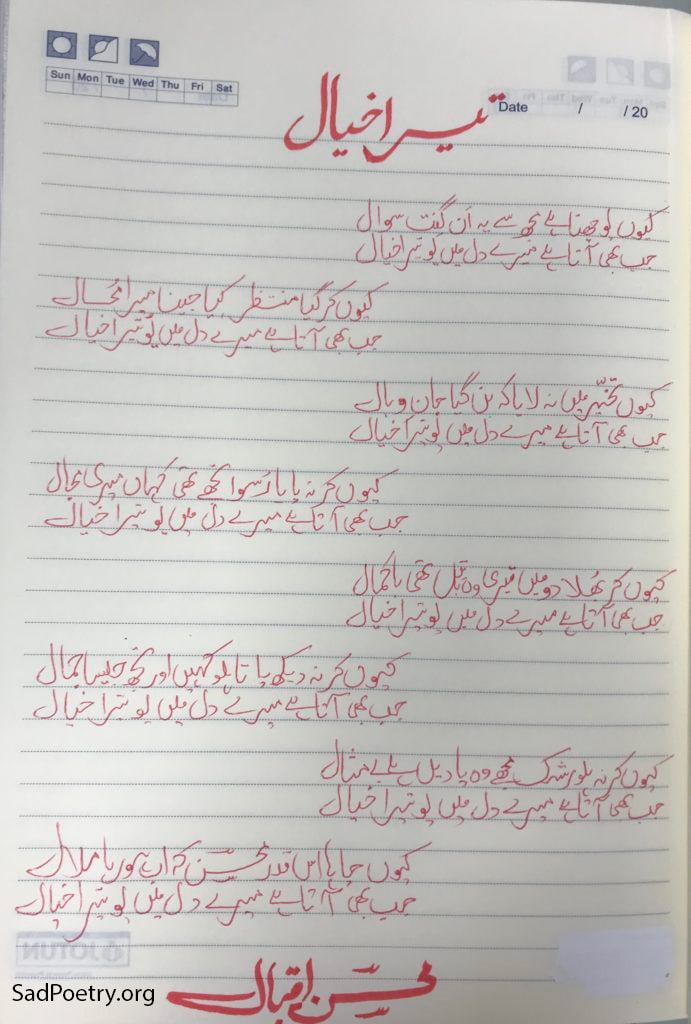 Sun Mon Tue Wed Thu Fri Sat
Date / / 20
تیرا خیال
کیوں پوچھتا ہے مجھ سے یہ اَن گِنت سوال
جب بھی آتا ہے میرے دل میں یوں تیرا خیال
کیوں کر گیا منتظر کیا جینا میرا مُحال
جب بھی آتا ہے میرے دل میں یوں تیرا خیال
کیوں میں نہ لایا کہ بن گیا جان وبال
جب بھی آتا ہے میرے دل میں یوں تیرا خیال
کیوں کر نہ پایا رسوا تجھے تھی کہاں میری مجال
جب بھی آتا ہے میرے دل میں یوں تیرا خیال
کیوں کر بُھلا دو میں تیری وہ تھی باکمال
جب بھی آتا ہے میرے دل میں یوں تیرا خیال
کیوں کر نہ دیکھ پاتا ہو کہیں اور تجھ جیسا جمال
جب بھی آتا ہے میرے دل میں یوں تیرا خیال
کیوں کر نہ ہو رشک مجھے وہ یادیں ہے بے مثال
جب بھی آتا ہے میرے دل میں یوں تیرا خیال
کیوں چاہا اس قدر محسن کہ اب ہو رہا ملال
جب بھی آتا ہے میرے دل میں یوں تیرا خیال
JOTUN
محسن اقبال
SadPoetry.org